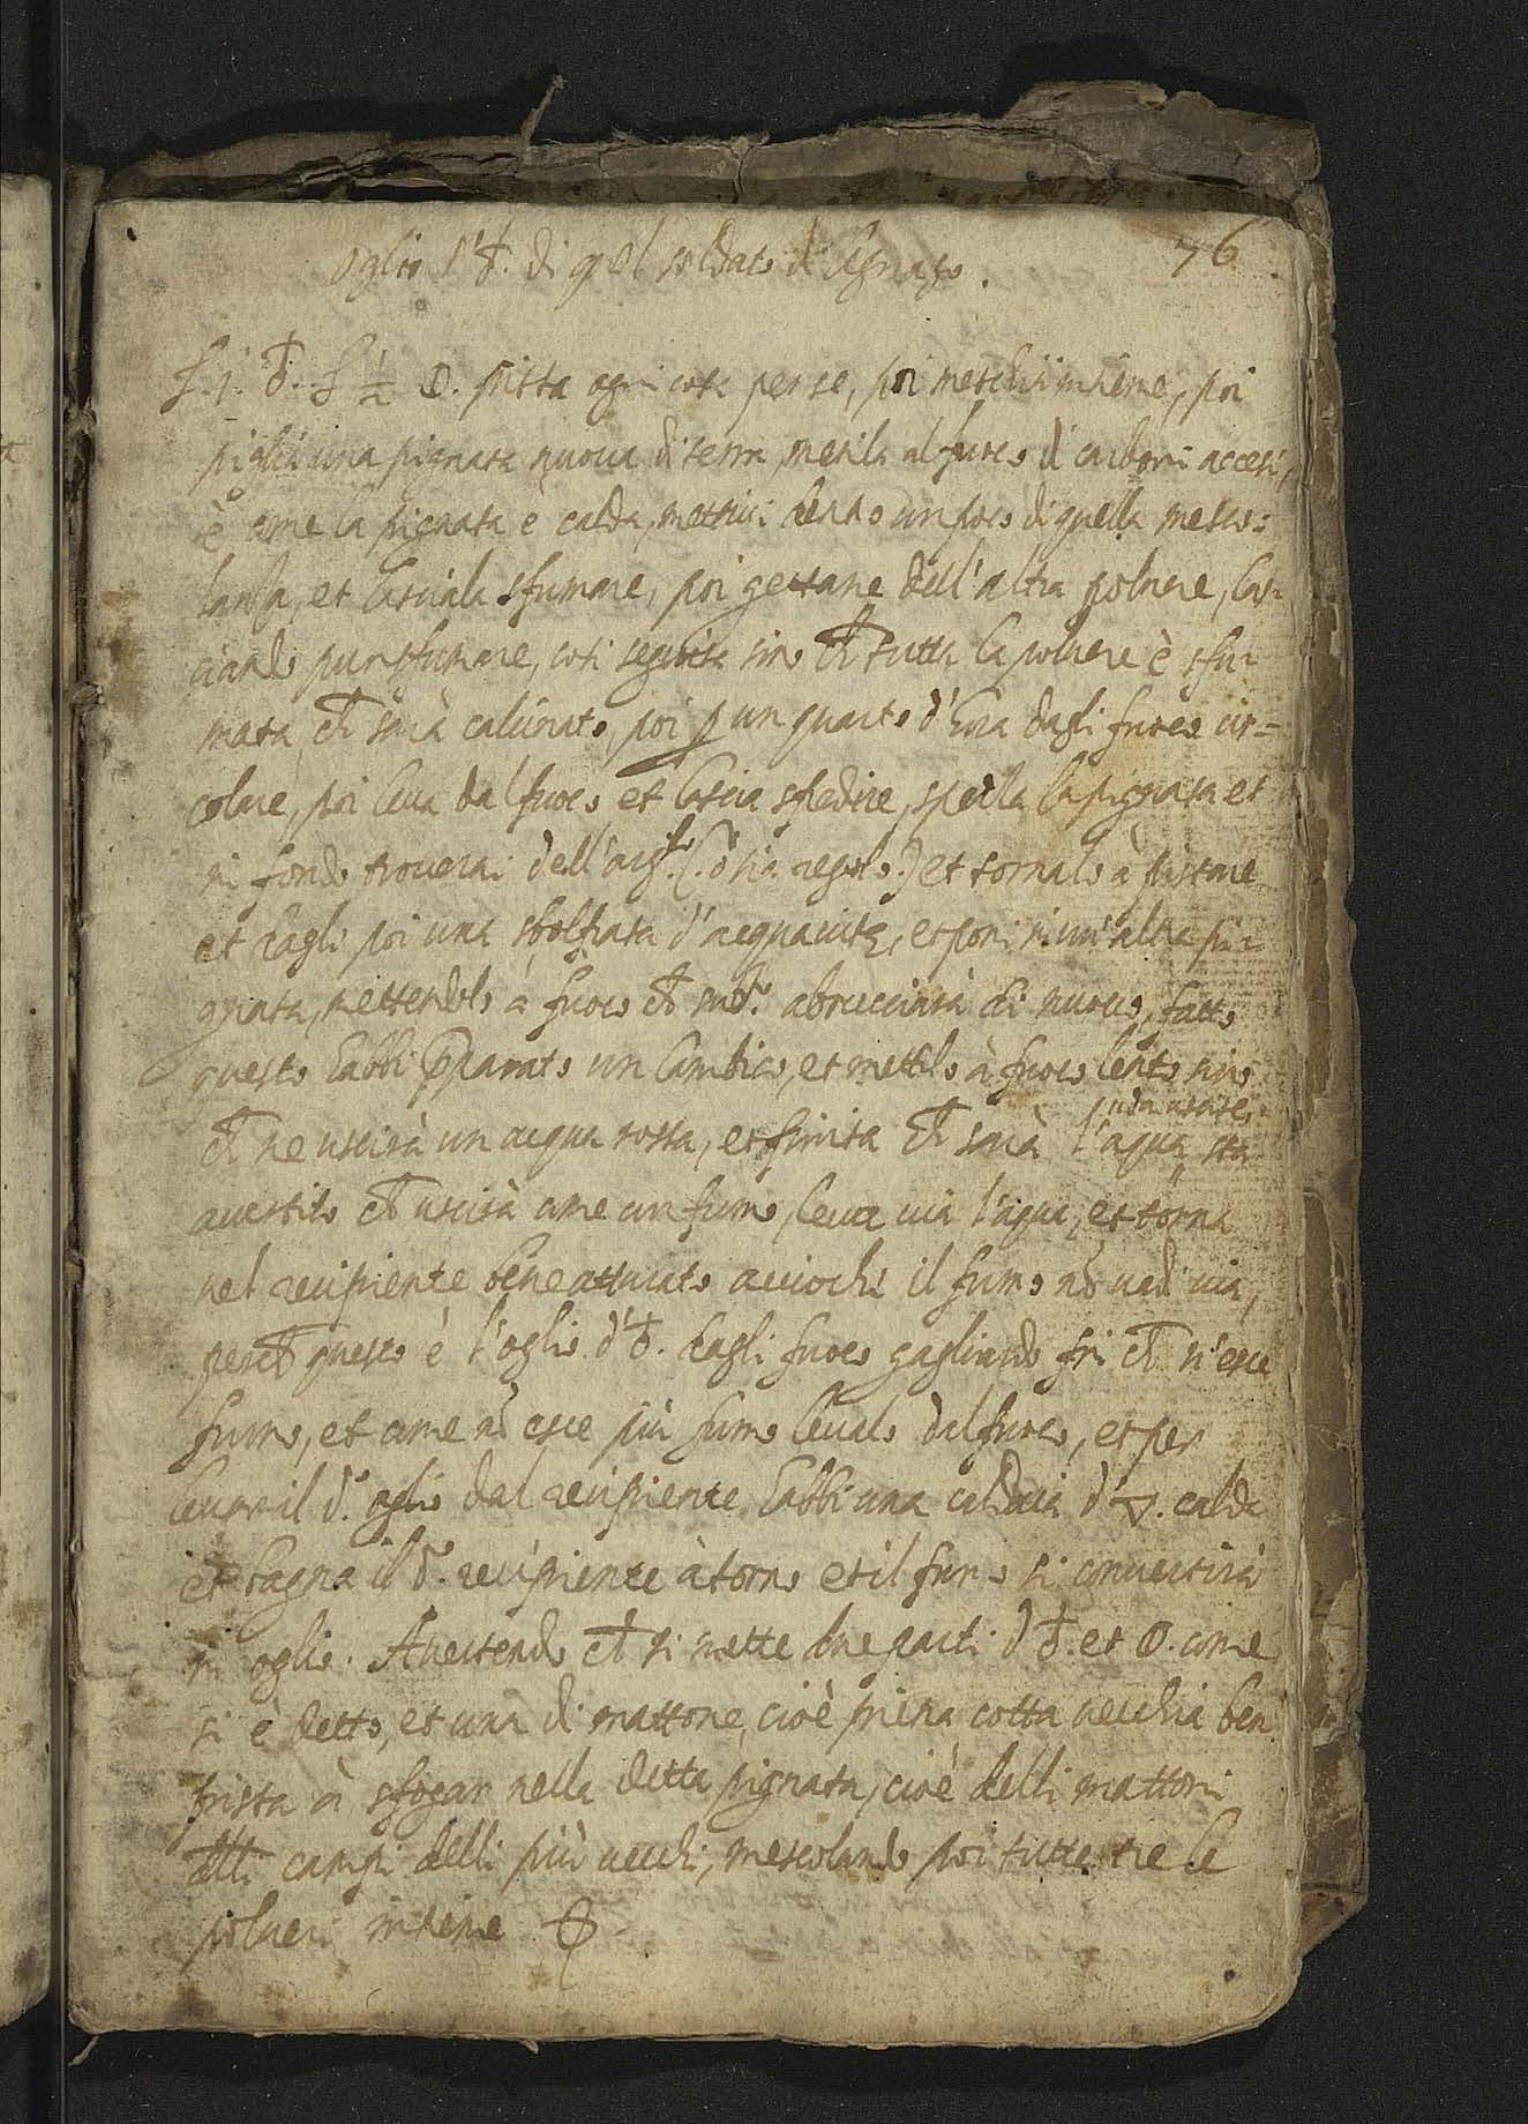 76
oglio d'♁. di q̃l soldato di
℔.j. ♁. ℔ ½ 🜕. pista ogni cosa per se, poi meschia insieme, poi
piglia una pignata nuova di terra, metila al fuoco di carboni accesi,
è come la pignata è calda, mettivi dentro un poco di quella mesco:
lanza, et lasciala sfumare, poi gettane dell'altra poluere, las:
ciando pur sfumare, cosi seguita sino ch̃ tutta la poluere è sfu:
mata, ch̃ sarà calcinato, poi ꝑ un quarto d'hora dagli fuoco cir=
colare, poi leua dal fuoco et lascia sfredire, spezza la pignata et
in fondo trouerai dell' (ò sia regolo.) et tornalo à pistare
et dagli poi una d'acquauita, et poni in un'altra pi:
gnata, mettendolo à fuoco ch̃ abrucciarà di nuouo, fatto
questo habbi p̃parato un lambico, et mettilo à fuoco lento sino
ch̃ ne uscirà un acqua rossa, et finita ch̃ sarà l'aqua sta
auertito ch̃ uscirà come un fumo, leua uia l'aqua, et torna
nel recipiente bene atturato acciochè il fumo nõ uadi uia,
perch̃ questo è l'oglio d'♁. dagli fuoco gagliardo fin ch̃ n'esce
fumo, et come nõ esce più fumo leualo dal fuoco, et per
leuare il d.º oglio dal recipiente habbi una caldaia d'🜄. calda
et bagna il d.º recipiente à torno et il fumo si conuertirà
in oglio. Auertendo ch̃ si mette due parti d'♁. et 🜕. come
si è detto, et una di mattone, cioè prima cotta uecchia ben
pista à sfogar nella detta pignata, cioè delli mattoni
delli campi delli più uecchi, mescolando poi tutte tre le
polueri insieme